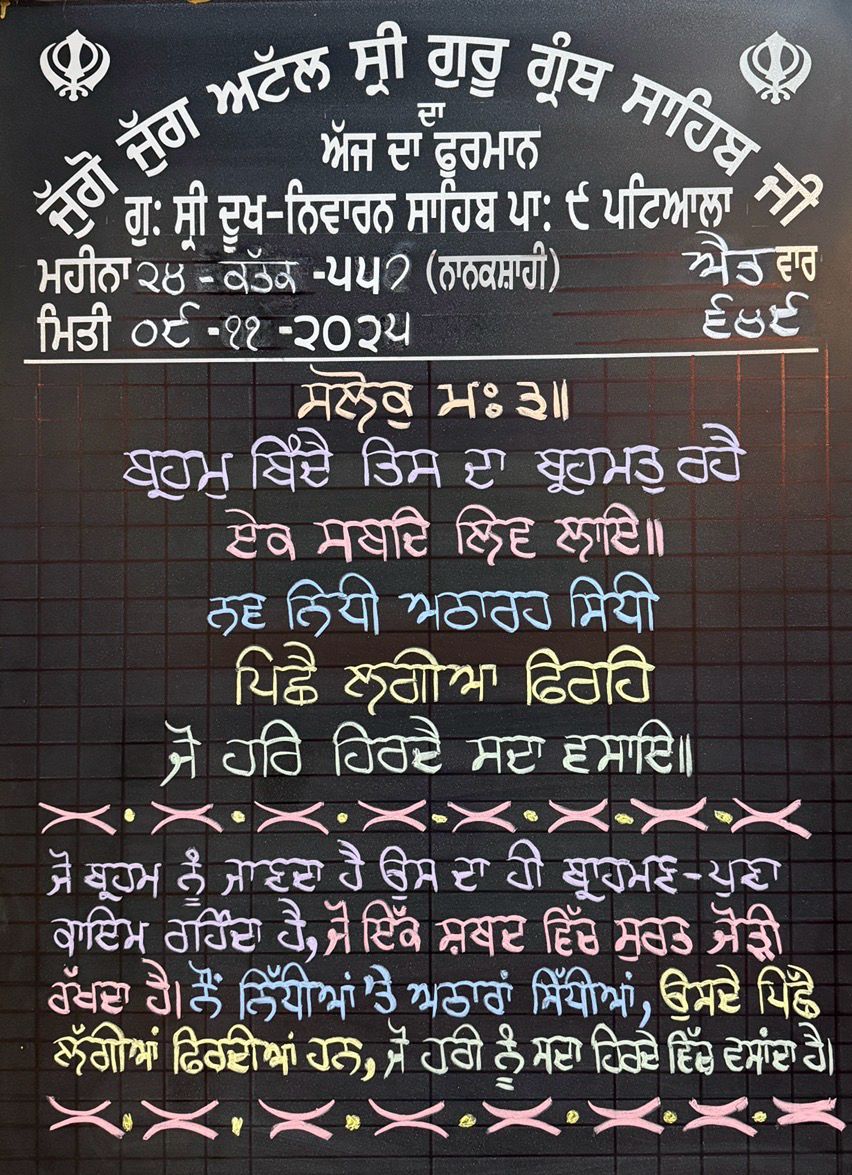 ਜੁੱਗੋ ਜੁੱਗ ਅਟੱਲ ਸ੍ਰੀ ਗੁਰੂ ਗ੍ਰੰਥ ਸਾਹਿਬ ਜੀ
ਦਾ
ਅੱਜ ਦਾ ਫੁਰਮਾਨ
ਗੁ: ਸ੍ਰੀ ਦੂਖ-ਨਿਵਾਰਨ ਸਾਹਿਬ ਪਾ: ੯ ਪਟਿਆਲਾ
ਮਹੀਨਾ ੨੪ - ਕੱਤਕ - ੫੫੭ (ਨਾਨਕਸ਼ਾਹੀ) ਐਤ ਵਾਰ
ਮਿਤੀ ੦੯ - ੧੧ - ੨੦੨੫ ੬੪੯
ਸਲੋਕੁ ਮ: ੩॥
ਬ੍ਰਹਮੁ ਬਿੰਦੈ ਤਿਸ ਦਾ ਬ੍ਰਹਮਤੁ ਰਹੈ
ਏਕ ਸਬਦਿ ਲਿਵ ਲਾਇ॥
ਨਵ ਨਿਧੀ ਅਠਾਰਹ ਸਿਧੀ
ਪਿਛੈ ਲਗੀਆ ਫਿਰਹਿ
ਜੋ ਹਰਿ ਹਿਰਦੈ ਸਦਾ ਵਸਾਇ॥
ਜੋ ਬ੍ਰਹਮ ਨੂੰ ਜਾਣਦਾ ਹੈ ਉਸ ਦਾ ਹੀ ਬ੍ਰਾਹਮਣ-ਪੁਣਾ
ਕਾਇਮ ਰਹਿੰਦਾ ਹੈ, ਜੋ ਇੱਕ ਸ਼ਬਦ ਵਿੱਚ ਸੁਰਤ ਜੋੜੀ
ਰੱਖਦਾ ਹੈ। ਨੌਂ ਨਿੱਧੀਆਂ 'ਤੇ ਅਠਾਰਾਂ ਸਿੱਧੀਆਂ, ਉਸਦੇ ਪਿੱਛੈ
ਲੱਗੀਆਂ ਫਿਰਦੀਆਂ ਹਨ, ਜੋ ਹਰੀ ਨੂੰ ਸਦਾ ਹਿਰਦੇ ਵਿੱਚ ਵਸਾਂਦਾ ਹੈ।